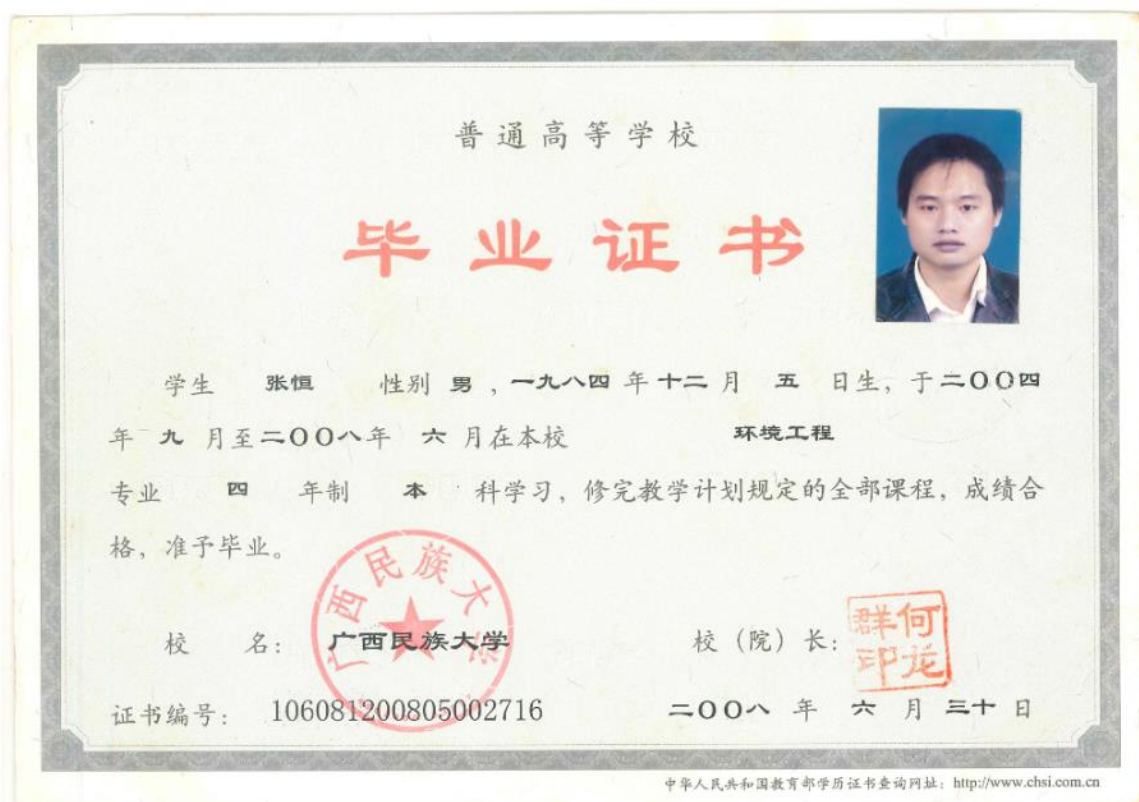 普通高等学校
毕业证书
学生 张恒 性别 男 ，一九八四 年 十二 月 五 日生，于二〇〇四
年 九 月至二〇〇八年 六 月在本校 环境工程
专业 四 年制 本 科学习，修完教学计划规定的全部课程，成绩合
格，准予毕业。
广西民族大学
校 名： 广西民族大学 校（院）长：
何龙群印
证书编号： 106081200805002716 二〇〇八 年 六 月 三十 日
中华人民共和国教育部学历证书查询网址：http://www.chsi.com.cn